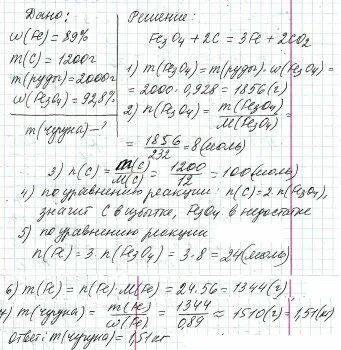 Дано:
w(Fe) = 89%
m(C) = 1200г
m(руды) = 2000г
w(Fe3O4) = 92,8%
m(чугуна) - ?
Решение:
Fe3O4 + 2C = 3Fe + 2CO2
1) m(Fe3O4) = m(руды) · w(Fe3O4) =
= 2000 · 0,928 = 1856(г)
2) n(Fe3O4) = m(Fe3O4) / M(Fe3O4) =
= 1856 / 232 = 8(моль)
3) n(C) = m(C) / M(C) = 1200 / 12 = 100(моль)
4) по уравнению реакции: n(C) = 2·n(Fe3O4),
значит C в избытке, Fe3O4 в недостатке
5) по уравнению реакции
n(Fe) = 3 · n(Fe3O4) = 3 · 8 = 24(моль)
6) m(Fe) = n(Fe) · M(Fe) = 24 · 56 = 1344(г)
7) m(чугуна) = m(Fe) / w(Fe) = 1344 / 0,89 ≈ 1510(г) = 1,51(кг)
Ответ: m(чугуна) = 1,51 кг